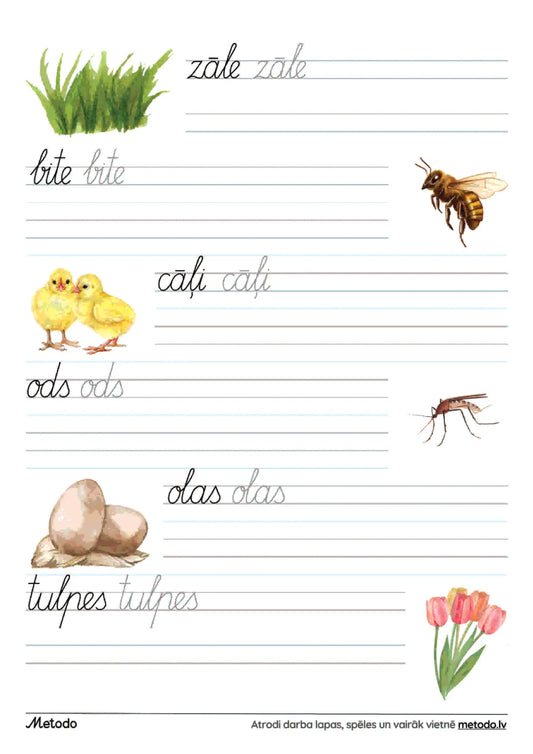 zāle zāle
bite bite
cāļi cāļi
ods ods
olas olas
tulpes tulpes
Metodo Atrodi darba lapas, spēles un vairāk vietnē metodo.lv